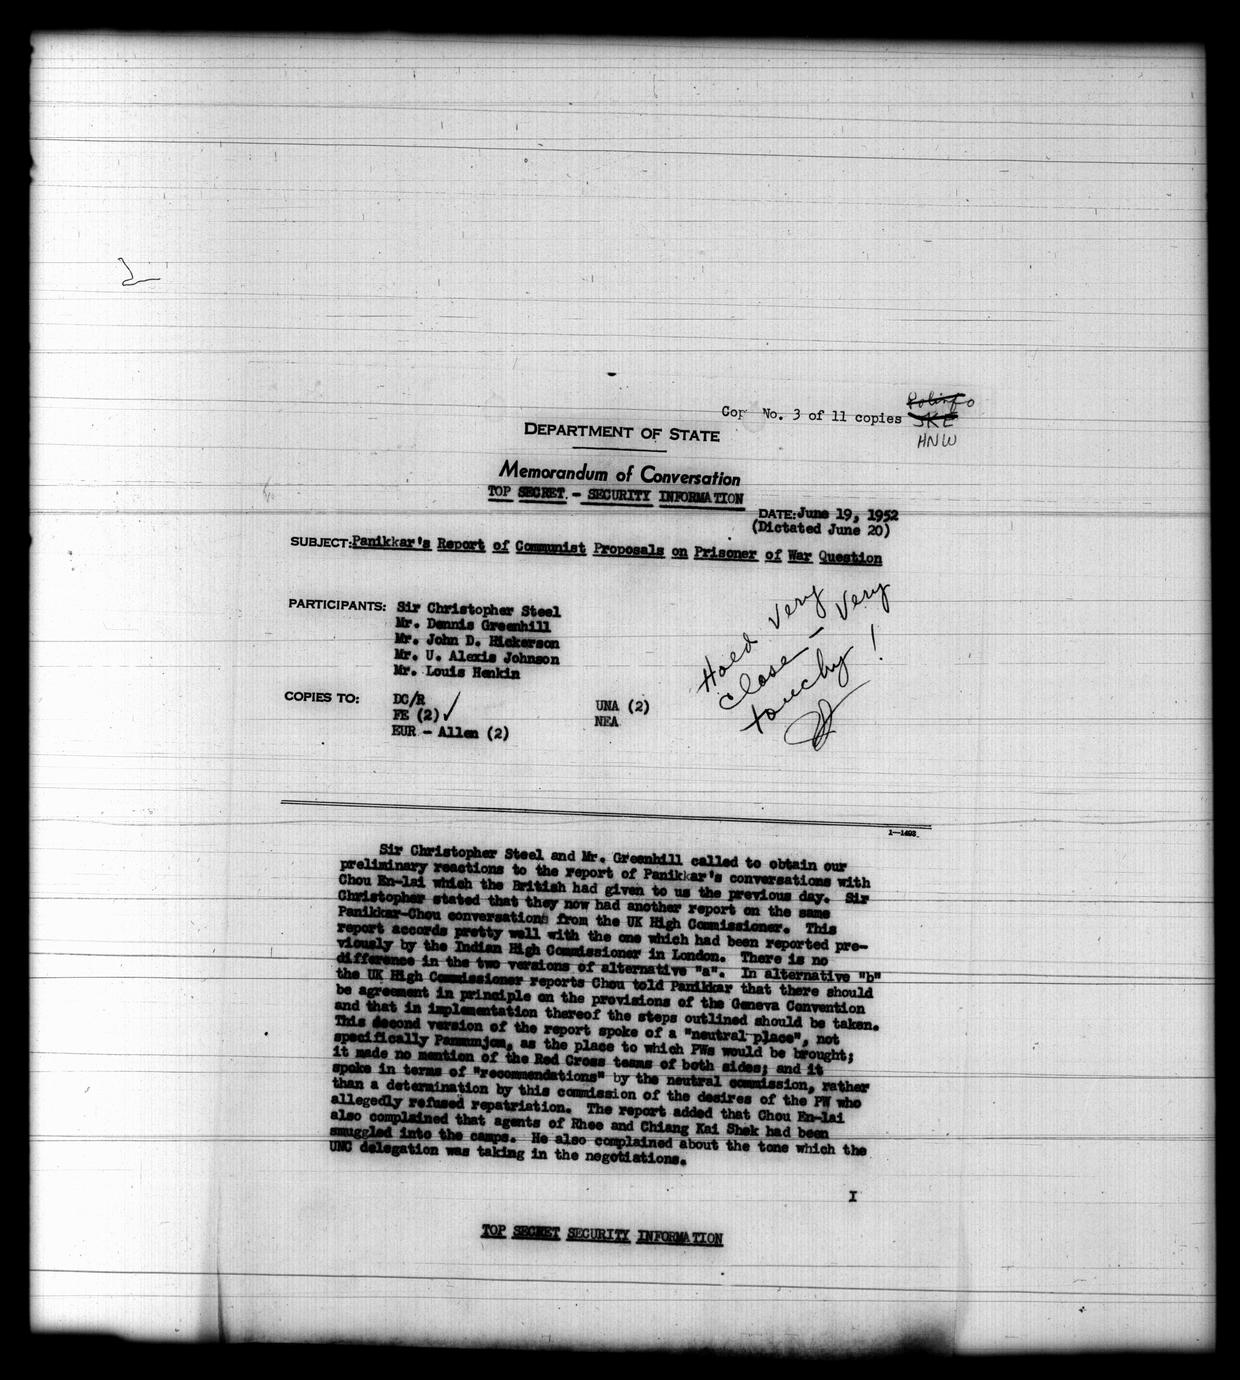 Cop No. 3 of 11 copies
HNW
DEPARTMENT OF STATE
Memorandum of Conversation
TOP SECRET - SECURITY INFORMATION
DATE: June 19, 1952
(Dictated June 20)
SUBJECT: Panikkar's Report of Communist Proposals on Prisoner of War Question
PARTICIPANTS: Sir Christopher Steel
Mr. Dennis Greenhill
Mr. John D. Hickerson
Mr. U. Alexis Johnson
Mr. Louis Henkin
Hold very
close — very
touchy!
COPIES TO: DC/R
FE (2) ✓
EUR - Allen (2)
UNA (2)
NEA
1-1493
Sir Christopher Steel and Mr. Greenhill called to obtain our
preliminary reactions to the report of Panikkar's conversations with
Chou En-lai which the British had given to us the previous day. Sir
Christopher stated that they now had another report on the same
Panikkar-Chou conversations from the UK High Commissioner. This
report accords pretty well with the one which had been reported pre-
viously by the Indian High Commissioner in London. There is no
difference in the two versions of alternative "a". In alternative "b"
the UK High Commissioner reports Chou told Panikkar that there should
be agreement in principle on the provisions of the Geneva Convention
and that in implementation thereof the steps outlined should be taken.
This second version of the report spoke of a "neutral place", not
specifically Panmunjom, as the place to which PWs would be brought;
it made no mention of the Red Cross teams of both sides; and it
spoke in terms of "recommendations" by the neutral commission, rather
than a determination by this commission of the desires of the PW who
allegedly refused repatriation. The report added that Chou En-lai
also complained that agents of Rhee and Chiang Kai Shek had been
smuggled into the camps. He also complained about the tone which the
UNC delegation was taking in the negotiations.
I
TOP SECRET SECURITY INFORMATION